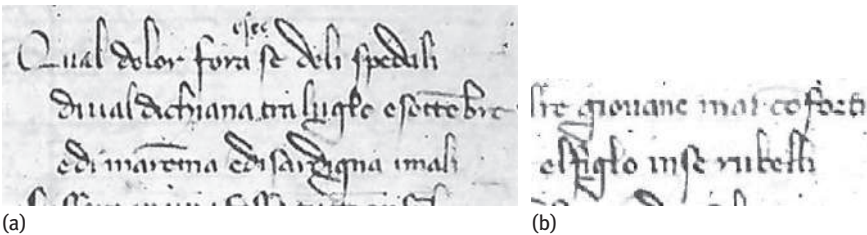 Qual dolor fora se deli spedali
diualdichiana tra luglo esettēbre
edi marēma edisardigna imali
(a)
lre giouane mai cōforti
elfiglo inse rubelli
(b)